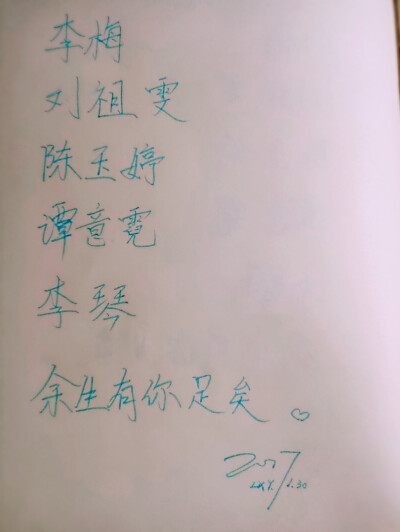 李梅
刘祖雯
陈玉婷
谭意霓
李琴
余生有你足矣♡
2017
6.30